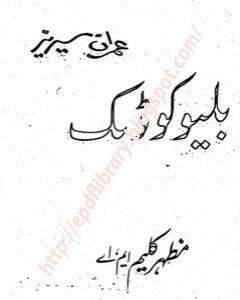 عمران سیریز
بلیو کوڈ بک
مظہر کلیم ایم، اے
http://epdflibrary.blogspot.com/